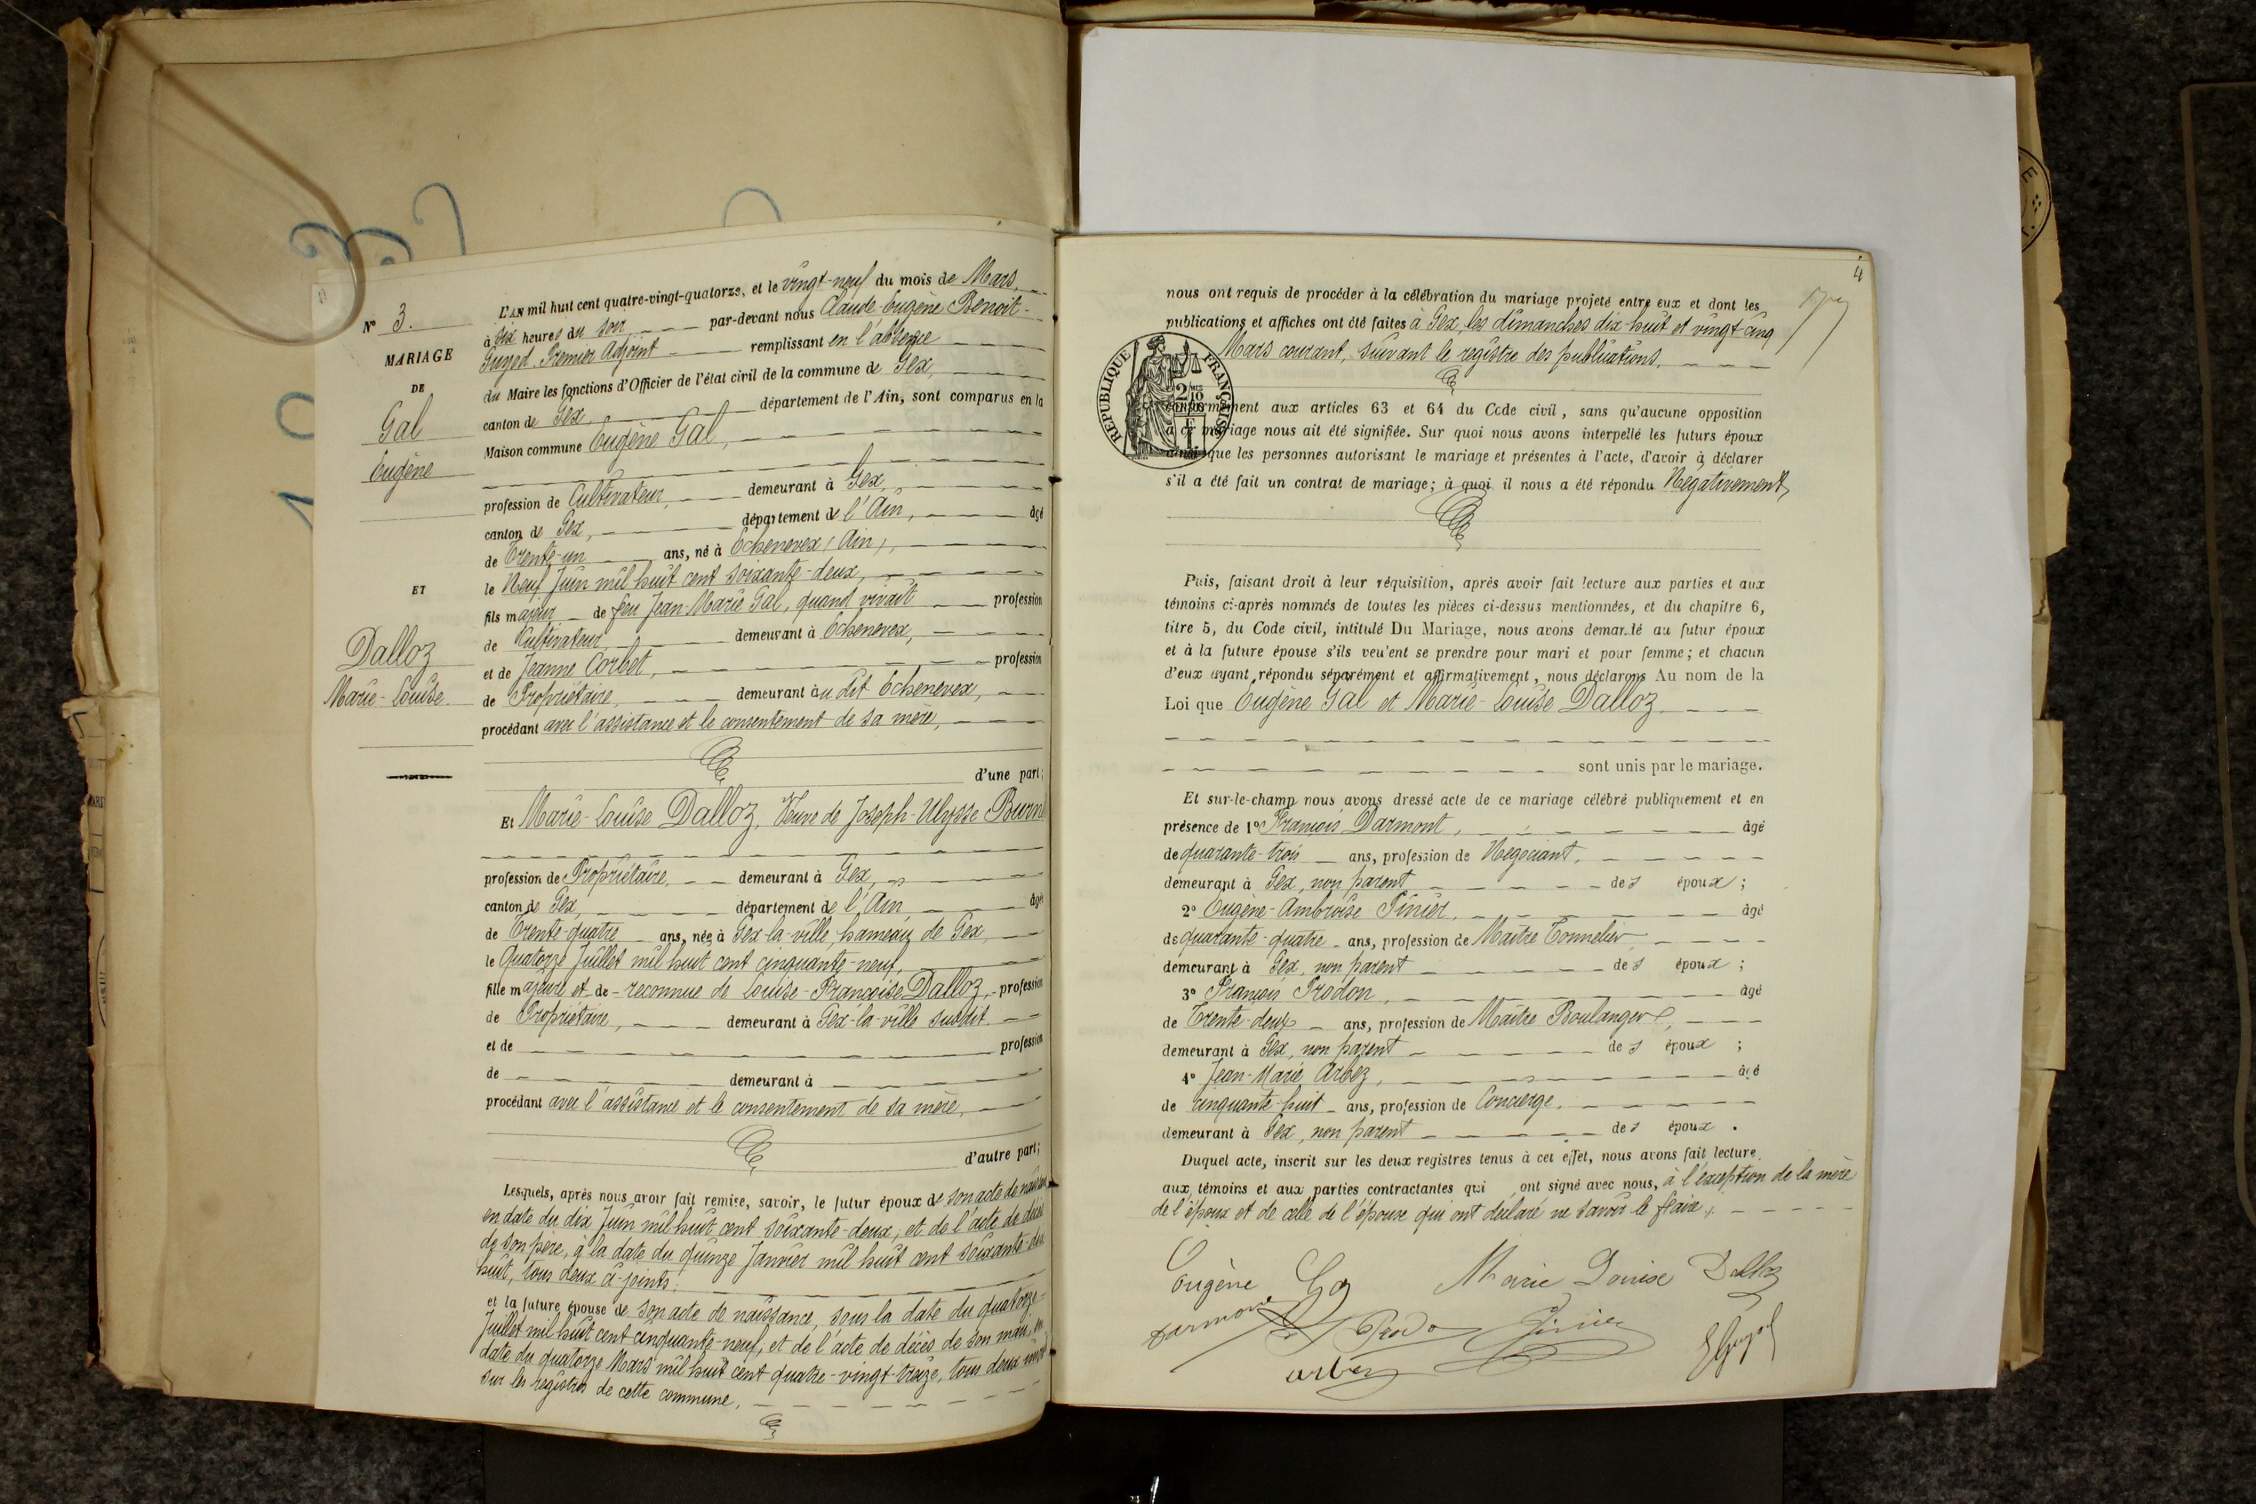 N° 3.
MARIAGE
DE
Gal
Eugène
ET
Dalloz
Marie-Louise.
L'AN mil huit cent quatre-vingt-quatorze, et le vingt-neuf du mois de Mars,
à six heures du soir par-devant nous Claude Eugène Benoit-
Guyod, Premier Adjoint remplissant en l'absence
du Maire les fonctions d'Officier de l'état civil de la commune de Gex,
canton de Gex, département de l'Ain, sont comparus en la
Maison commune Eugène Gal,
profession de Cultivateur, demeurant à Gex,
canton de Gex, département de l'Ain, âgé
de Trente-un ans, né à Echenevex (Ain),
le Neuf Juin mil huit cent soixante-deux,
fils majeur de feu Jean-Marie Gal, quand vivait profession
de Cultivateur demeurant à Echenevex,
et de Jeanne Corbet, profession
de Propriétaire, demeurant au dit Echenevex,
procédant avec l'assistance et le consentement de sa mère,
d'une part;
Et Marie-Louise Dalloz, Veuve de Joseph-Ulysse
profession de Propriétaire, demeurant à Gex,
canton de Gex, département de l'Ain, âgé
de Trente-quatre ans, née à Gex-la-ville, hameau de Gex,
le Quatorze Juillet mil huit cent cinquante-neuf,
fille majeure et de - reconnue de Louise-Françoise Dalloz, profession
de Propriétaire, demeurant à Gex-la-ville susdit.
et de profession
de demeurant à
procédant avec l'assistance et le consentement de sa mère,
d'autre part;
Lesquels, après nous avoir fait remise, savoir, le futur époux de son acte de
en date du dix Juin mil huit cent soixante-deux, et de l'acte de décès
de son père, à la date du quinze Janvier mil huit cent soixante-dix
huit, tous deux ci-joints;
et la future épouse de son acte de naissance, sous la date du quatorze
Juillet mil huit cent cinquante-neuf, et de l'acte de décès de son mari, en
date du quatorze Mars mil huit cent quatre-vingt-treize, tous deux
sur les registres de cette commune.
4
nous ont requis de procéder à la célébration du mariage projeté entre eux et dont les
publications et affiches ont été faites à Gex, les dimanches dix-huit et vingt-cinq
Mars courant, suivant le registre des publications.
RÉPUBLIQUE FRANÇAISE
2/10
conformément aux articles 63 et 64 du Code civil, sans qu'aucune opposition
à ce mariage nous ait été signifiée. Sur quoi nous avons interpellé les futurs époux
ainsi que les personnes autorisant le mariage et présentes à l'acte, d'avoir à déclarer
s'il a été fait un contrat de mariage; à quoi il nous a été répondu Négativement,
Puis, faisant droit à leur réquisition, après avoir fait lecture aux parties et aux
témoins ci-après nommés de toutes les pièces ci-dessus mentionnées, et du chapitre 6,
titre 5, du Code civil, intitulé Du Mariage, nous avons demandé au futur époux
et à la future épouse s'ils veulent se prendre pour mari et pour femme; et chacun
d'eux ayant répondu séparément et affirmativement, nous déclarons Au nom de la
Loi que Eugène Gal et Marie-Louise Dalloz
sont unis par le mariage.
Et sur-le-champ nous avons dressé acte de ce mariage célébré publiquement et en
présence de 1° François Darmont, âgé
de quarante-trois ans, profession de Négociant,
demeurant à Gex, non parent des époux;
2° Eugène-Ambroise Pinier, âgé
de quarante-quatre ans, profession de Maître Tonnelier
demeurant à Gex, non parent des époux;
3° François Prodon, âgé
de Trente-deux ans, profession de Maître Boulanger,
demeurant à Gex, non parent des époux;
4° Jean-Marie Arbez, âgé
de cinquante-huit ans, profession de Concierge.
demeurant à Gex, non parent des époux.
Duquel acte, inscrit sur les deux registres tenus à cet effet, nous avons fait lecture
aux témoins et aux parties contractantes qui ont signé avec nous, à l'exception de la mère
de l'époux et de celle de l'épouse qui ont déclaré ne savoir le faire.
Eugène Marie Louise Dalloz